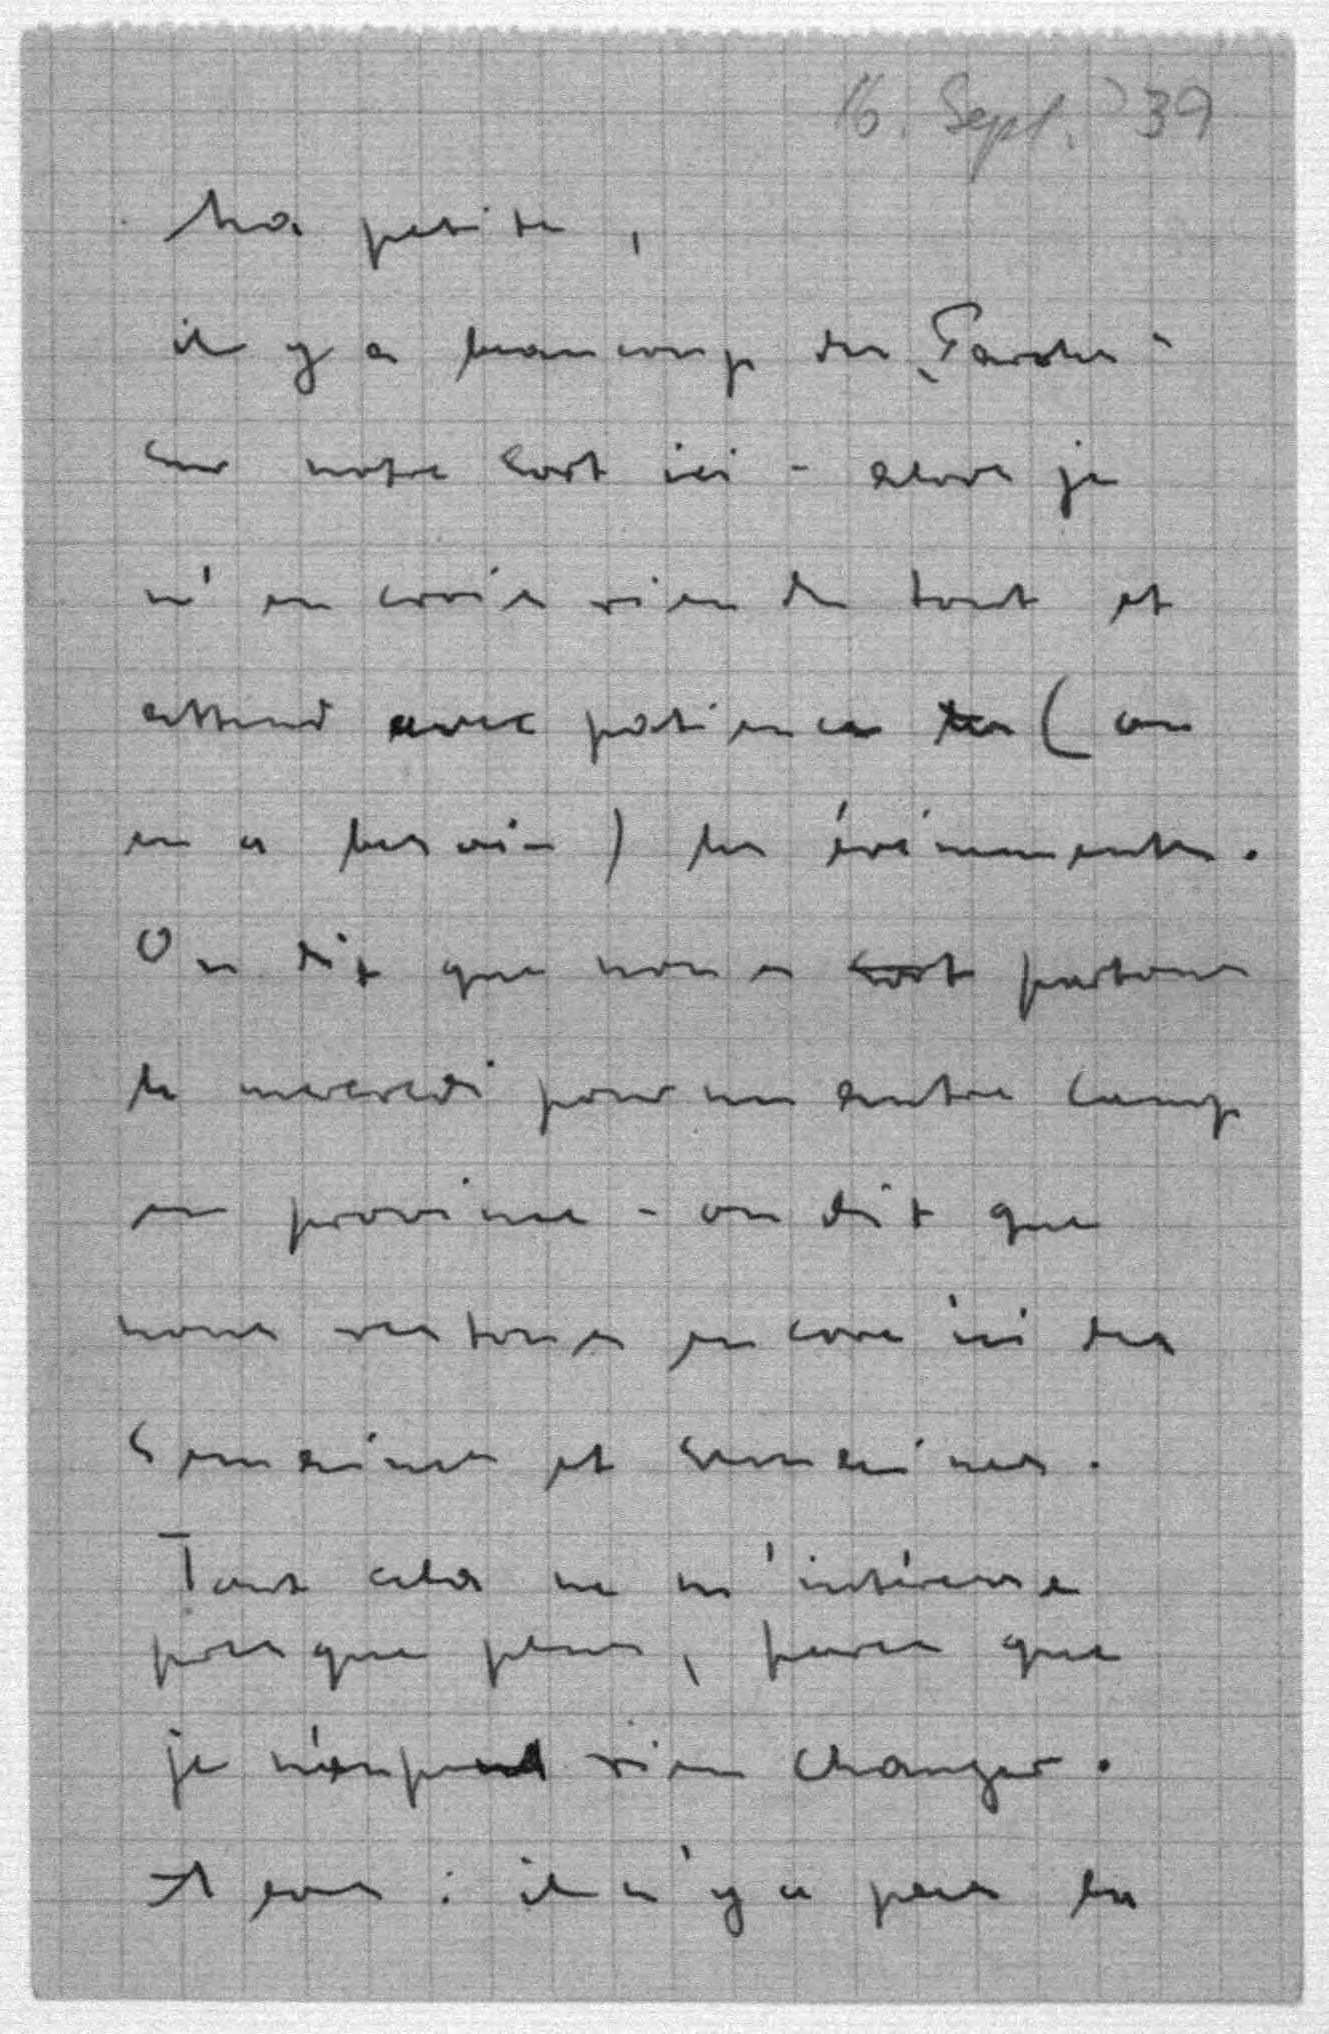 16. Sept. 39
Ma petite,
il y a beaucoup des „Paroles“
sur notre sort ici - alors je
n'en crois rien du tout et
attend avec patience (on
en a besoin) les événements.
On dit que nous sort partons
le mercredi pour un autre camp
en province - on dit que
nous restons encore ici des
semaines et semaines.
Tout cela ne m'intéresse
presque plus, parce que
je n'en peux rien changer.
Alors : il n'y a pas